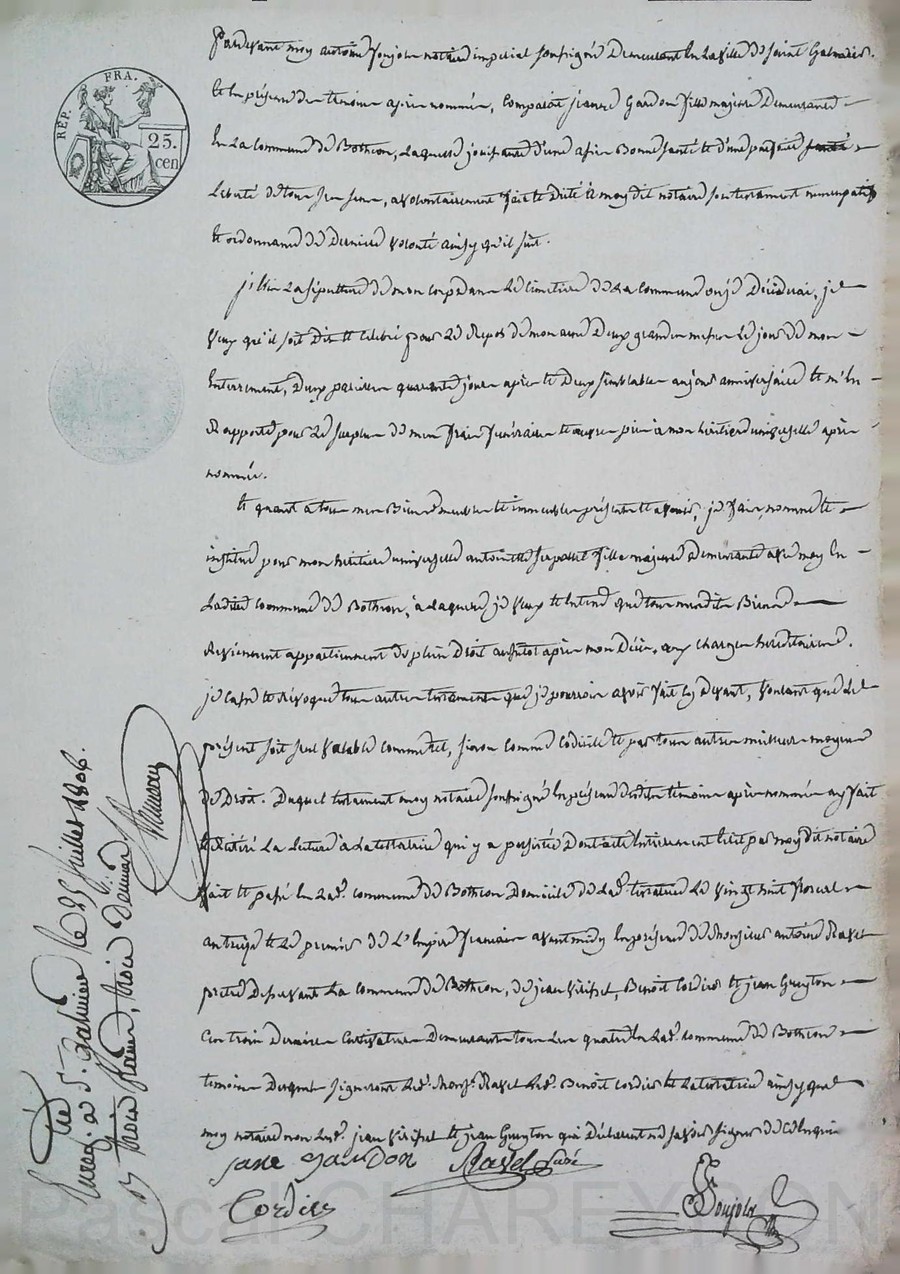 RÉP. FRA.
25. cen
Pardevant moy antoine Soujols notaire imperial soussigné demeurant en la ville de saint Galmier.
et en présence des temoins après nommés, comparait jeanne Gardon fille majeure demeurante
en la commune de Bothéon, laquelle jouissante d'une assés Bonne santé et d'une parfaite
Liberté de tous ses sens, a volontairement fait et dicté à moy dit notaire son testament nuncupatif
et ordonnance de derniere volonté ainsy qu'il suit.
j'élis la sépulture de mon corps dans le cimetiere de la commune ou je décéderai, je
veux qu'il soit dit et célébré pour le repos de mon ame deux grandes messes le jour de mon
enterrement, deux pareilles quarante jours après et deux semblables au jour anniversaire et m'en
Rapporte pour le surplus de mes frais funéraires et œuvres pies à mon héritiere universelle après
nommée.
et quant a tous mes Biens meubles et immeubles présents et a venir, je fais, nomme et
institue pour mon héritiere universelle antoinette fille majeure demeurante avec moy en
Ladite commune de Bothéon, à laquelle je veux et entend que tous mesdits Biens
Reviennent appartiennent de plein Droit aussitot après mon Décès, aux charges héréditaires.
je casse et révoque tous autres testaments que je pourrois avoir fait cy devant, voulant que le
présent soit seul valable comme tel, sinon comme codicille et par tous autres meilleurs moyens
de Droit. Duquel testament moy notaire soussigné en présence desdits témoins après nommés ay fait
et réitéré la lecture à la testatrice qui y a persisté dont acte entierement écrit par moy dit notaire
fait et passé en lad. commune de Bothéon domicile de lad. testatrice le vingt huit floreal
an treize et le premier de l'Empire francais avant midy en présence de Monsieur antoine Ravel
prêtre desservant la commune de Bothéon, de jean Viriset, Benoît Cordier et jean Guyton
ces trois derniers cultivateurs demeurants tous les quatre en lad. commune de Bothéon
temoins desquels signeront led. Monsr. Ravel led. Benoit Cordier et la testatrice ainsy que
moy notaire non lesd. jean Viriset et jean Guyton qui déclarent ne savoir signer de ce enquis
jane gardon Ravel Curé
Cordier Soujols
Enreg. à St. Galmier le 25 juillet 1806.
Reçu trois francs, trois decimes
Pascal CHAREYRON